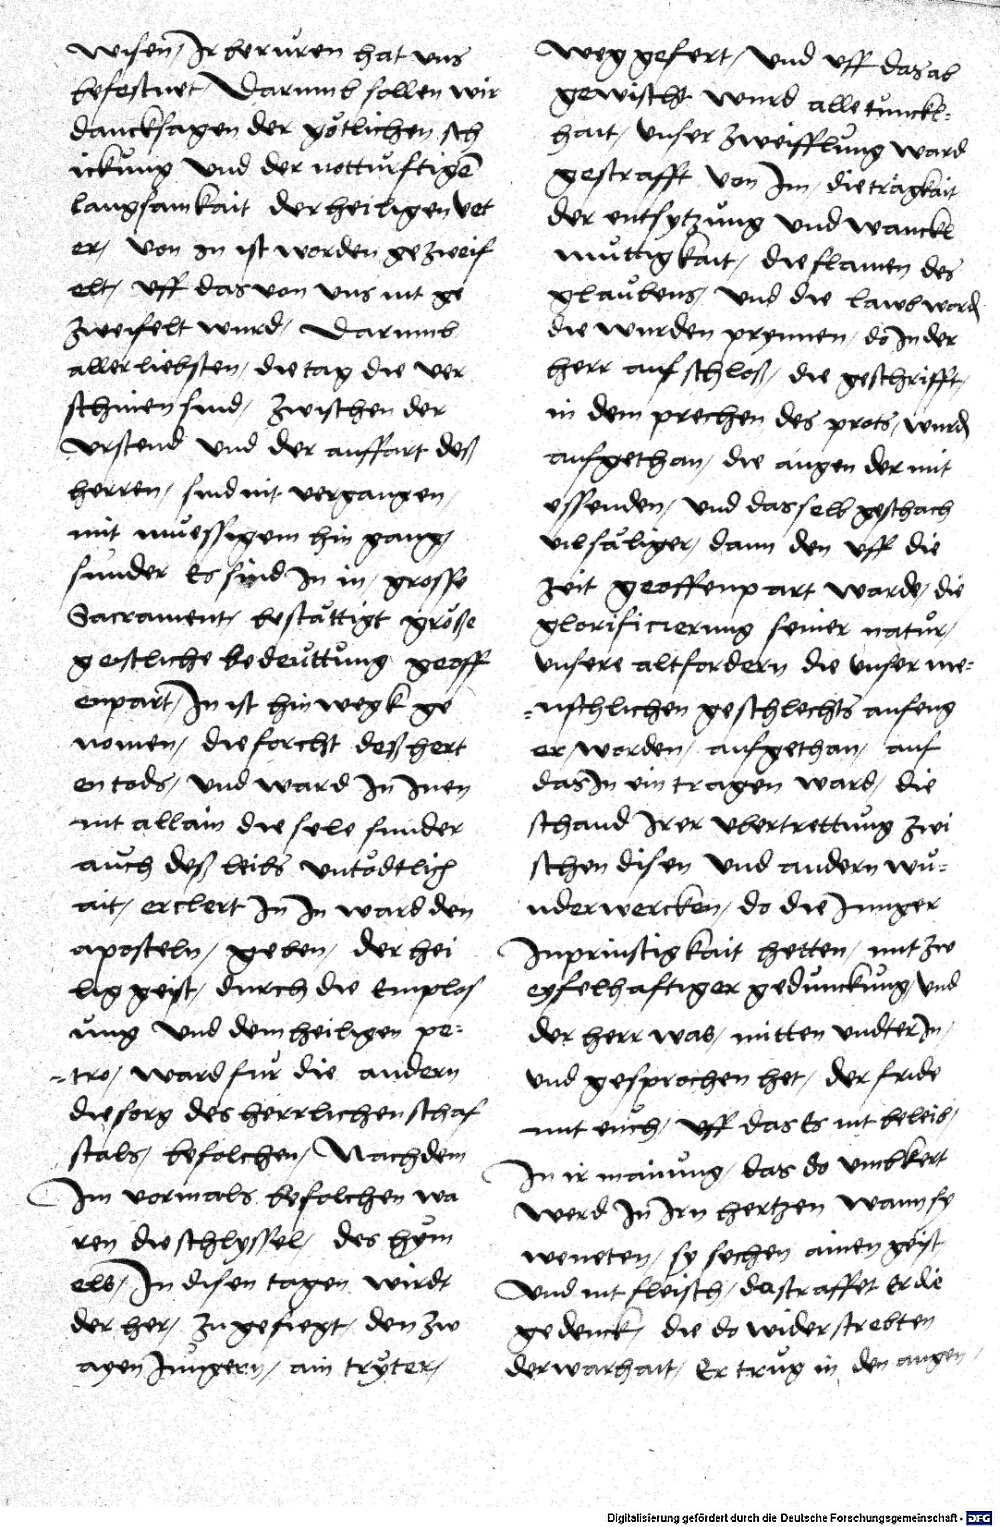 wisen / Ir beruren hat uns
befestnet / Darumb sollen wir
dancksagen der götlichen sch
ickung und der notturftigen
langsamkait der heiligen vet
er / von in ist worden gezweif
elt / uff das von uns nit ge
zweifelt wurd / Darumb
aller liebsten / die tag die ver
schinen sind / zwischen der
urstend und der auffart deß
herren / sind nit vergangen /
mit muessigem hin gang /
sunder Es sind In in / grosse
Sacrament / bestättigt größe
geistliche bedeuttung geoff
enpart / In ist hin wegk ge
nomen / die forcht deß hert
en tods / und ward In Inen
nit allain die sele sunder
auch deß leibs untödtlich
ait / erclert In In ward den
aposteln / geben / der hei
lig geist / durch die Emplos
ung und dem heiligen pe-
-tro / ward fur die andern
die sorg des herrlichen schaf
stals / befolchen / Nachdem
Im vormals befolchen wa
ren die schlyssel / des hym
els / In disen tagen wirdt
der her / zu gefiegt / den zw
ayen Jungern / ain tryter /
weg gefert / und uff das ab
gewischt wurd alle tunckl-
hait / unser zweifflung ward
gestrafft von Im / die trägkait
der entsytzung und wanckl
muttigkait / die flamen des
glaubens / und die lawb word
die wurden prynnen / do In der
herr auf schloß / die geschrifft /
in dem prechen des prots / wurd
aufgethan / die augen der mit
essenden / und das selb geschach
vil säliger / dann den uff die
zeit geoffenpart warde / die
glorificierung seiner natur /
unsere altfordern die unser me-
-nschlichen geschlechts anfeng
er / worden / aufgethan / auf
das In ein tragen ward / die
schand Irer ubertrettung zwi
schen disen und andern wu-
nderwercken / do die Junger
Inprinstigkait hetten / mit zw
eyfelhaftiger gedunckung / und
der herr was / mitten undter In /
und gesprochen het / der fride
mit euch / uff das Es nit beleib /
In ir mainung / das do umbkert
werd In Irn hertzen wann sy
weneten / sy sechen ainen geist
und nit fleisch / do straffet Er die
gedenck / die do widerstrebten
der warhait / Er trug in den augen /
Digitalisierung gefördert durch die Deutsche Forschungsgemeinschaft - DFG